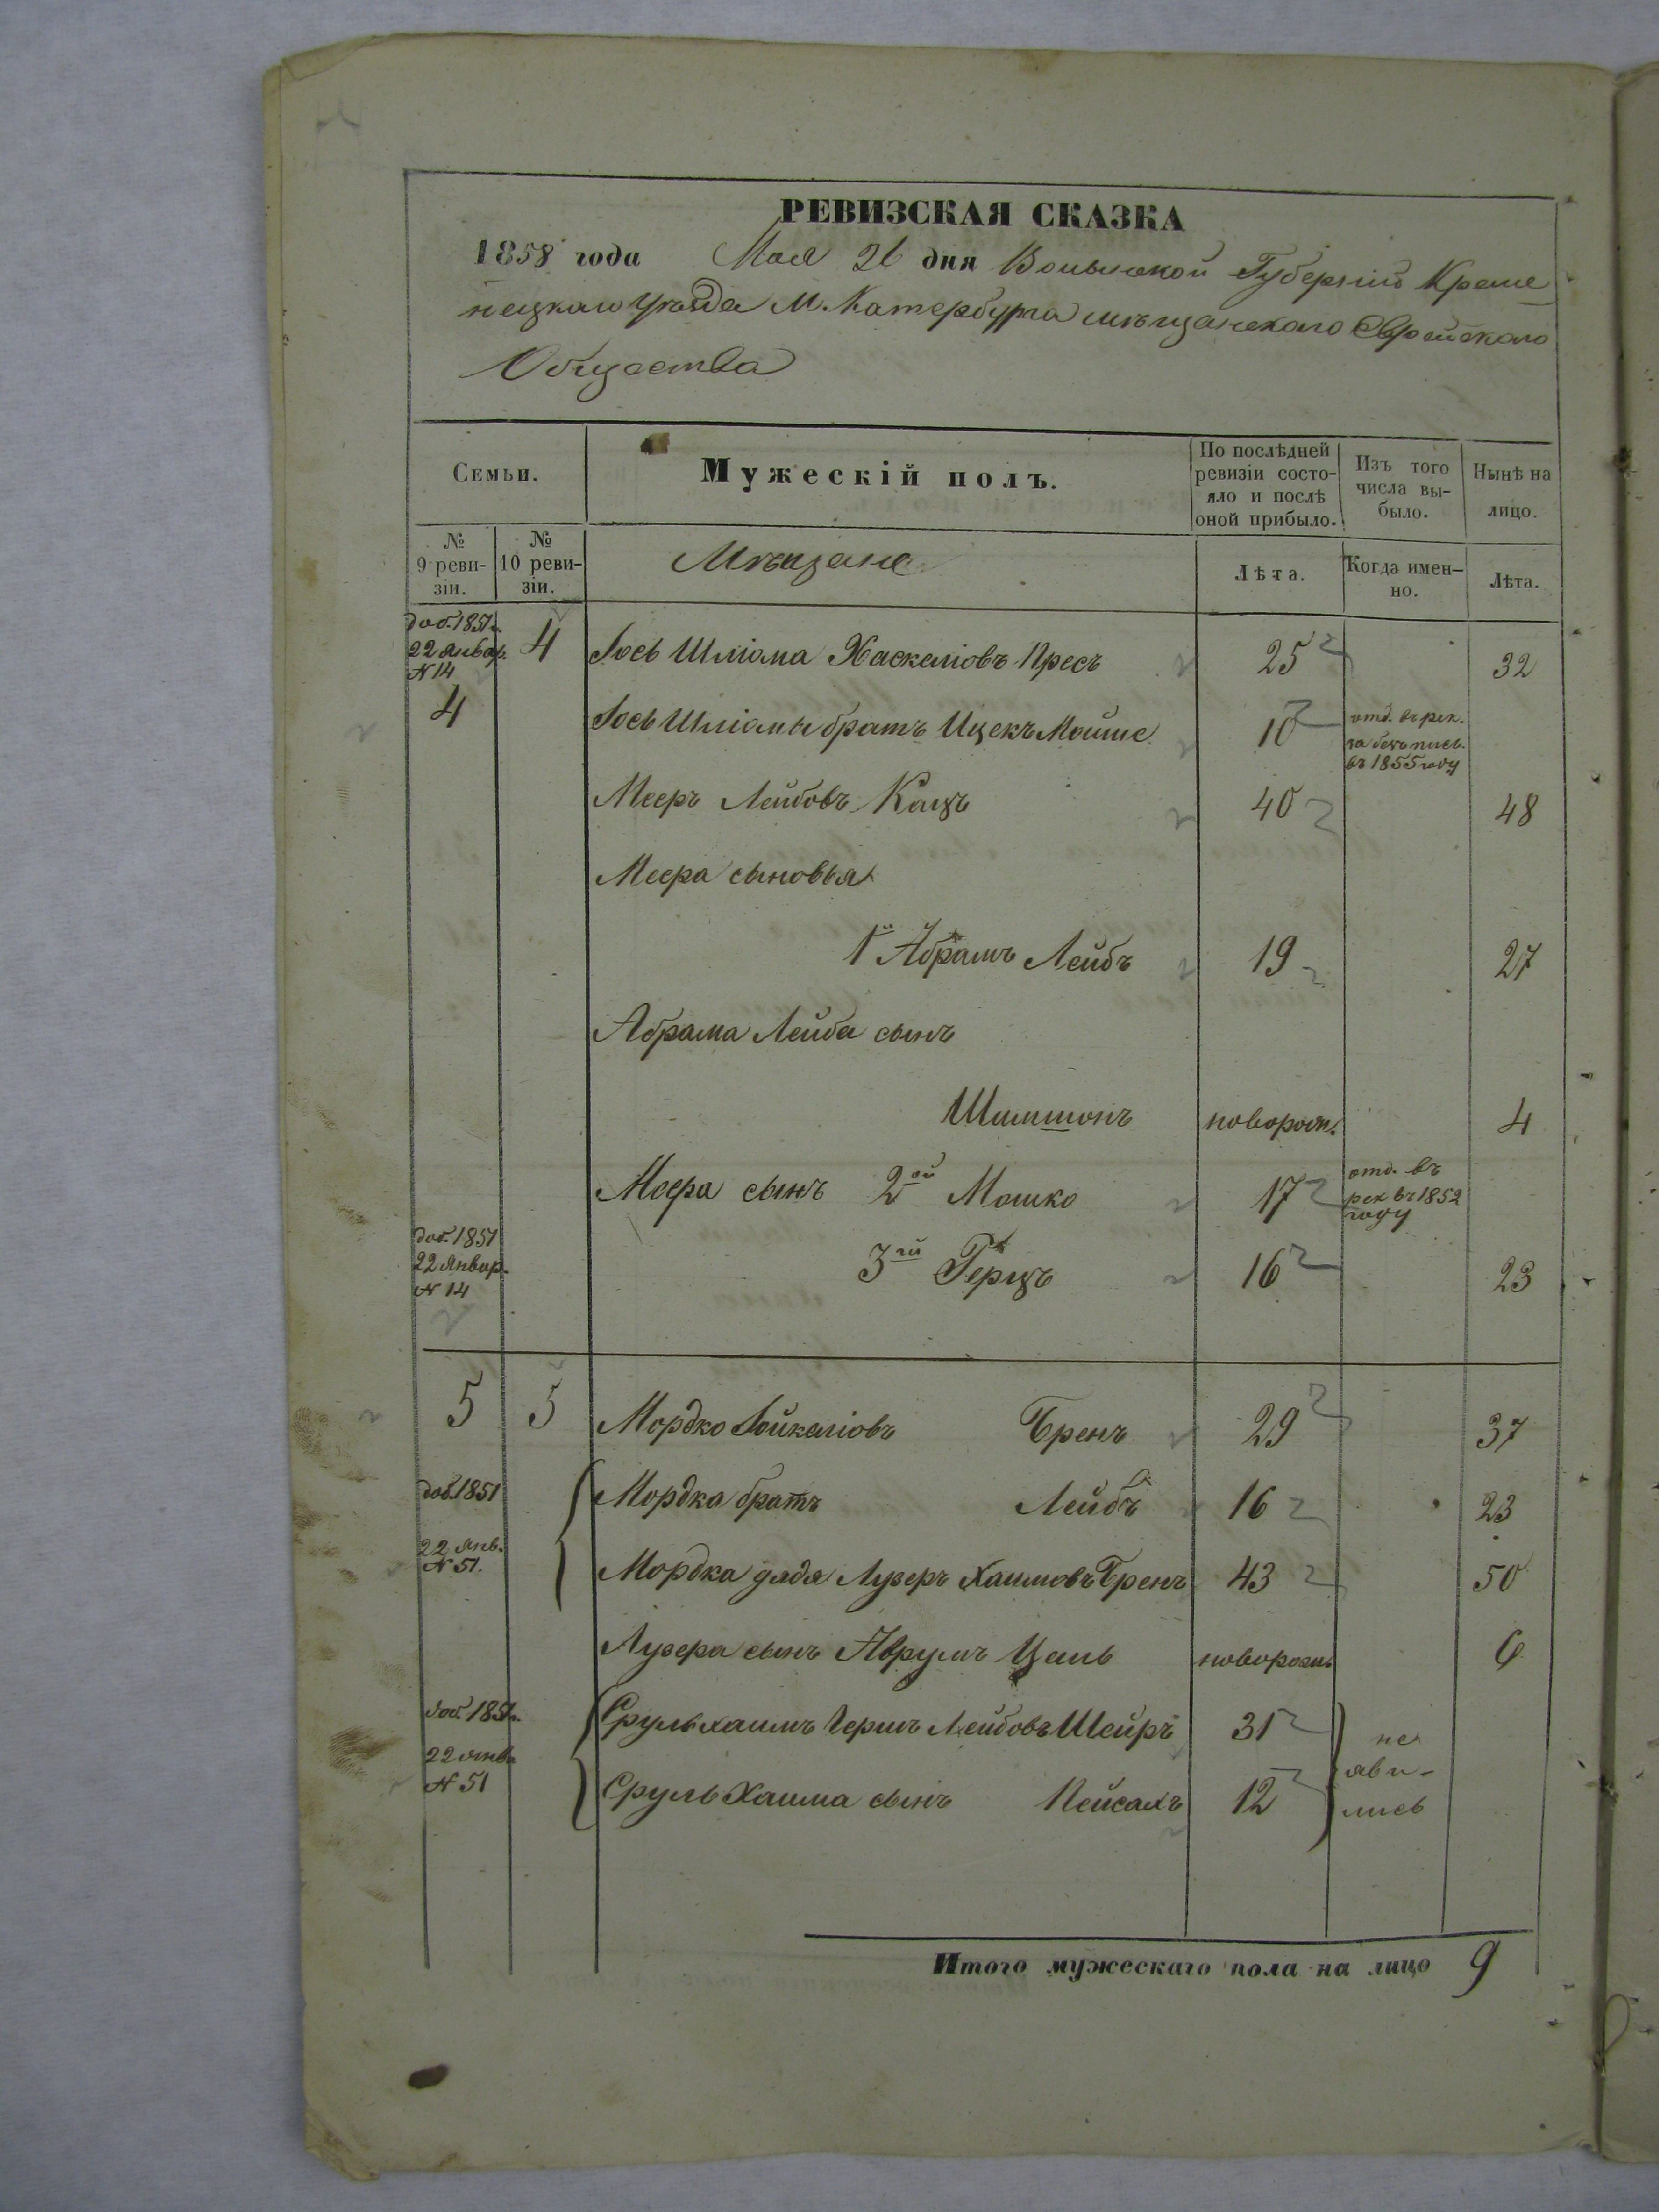 РЕВИЗСКАЯ СКАЗКА
1858 года Мая 26 дня Волынской Губерніи Креме
нецкаго Уѣзда М. Катербурга мѣщанскаго Еврейскаго
Общества
Семьи. Мужескій полъ. По послѣдней ревизіи состо- яло и послѣ оной прибыло. Изъ того числа вы- было. Нынѣ на лицо.
№ 9 реви- зіи. № 10 реви- зіи. Мѣщане Лѣта. Когда имен- но. Лѣта.
доб. 1851 г.
22 Январ. 4 Іось Шліома Хаскеліовъ Пресъ 25 32
N 14
4 Іось Шліомы братъ Ицекъ Мойше 10 отд. въ рек.
за безъ пись.
въ 1855 году
Мееръ Лейбовъ Кацъ 40 48
Меера сыновья
1й Абрамъ Лейбъ 19 27
Абрама Лейба сынъ
Шимшонъ новорож. 4
Меера сынъ 2ой Мошко 17 отд. въ
рек въ 1852
году
доб. 1851
22 Январ. 3ій Герцъ 16 23
N 14
5 5 Мордко Іойкеліовъ Бренъ 29 37
доб. 1851 Мордка братъ Лейбъ 16 23
22 Янв. Мордка дядя Лузеръ Хаимовъ Бренъ 43 50
N 51.
Лузера сынъ Аврумъ Цаль новорожд. 6
доб. 1851 г. Срульхаимъ Гершъ Лейбовъ Шейръ 31 не
22 янв. яви-
N 51 Сруль Хаима сынъ Пейсахъ 12 лись
Итого мужескаго пола на лицо 9